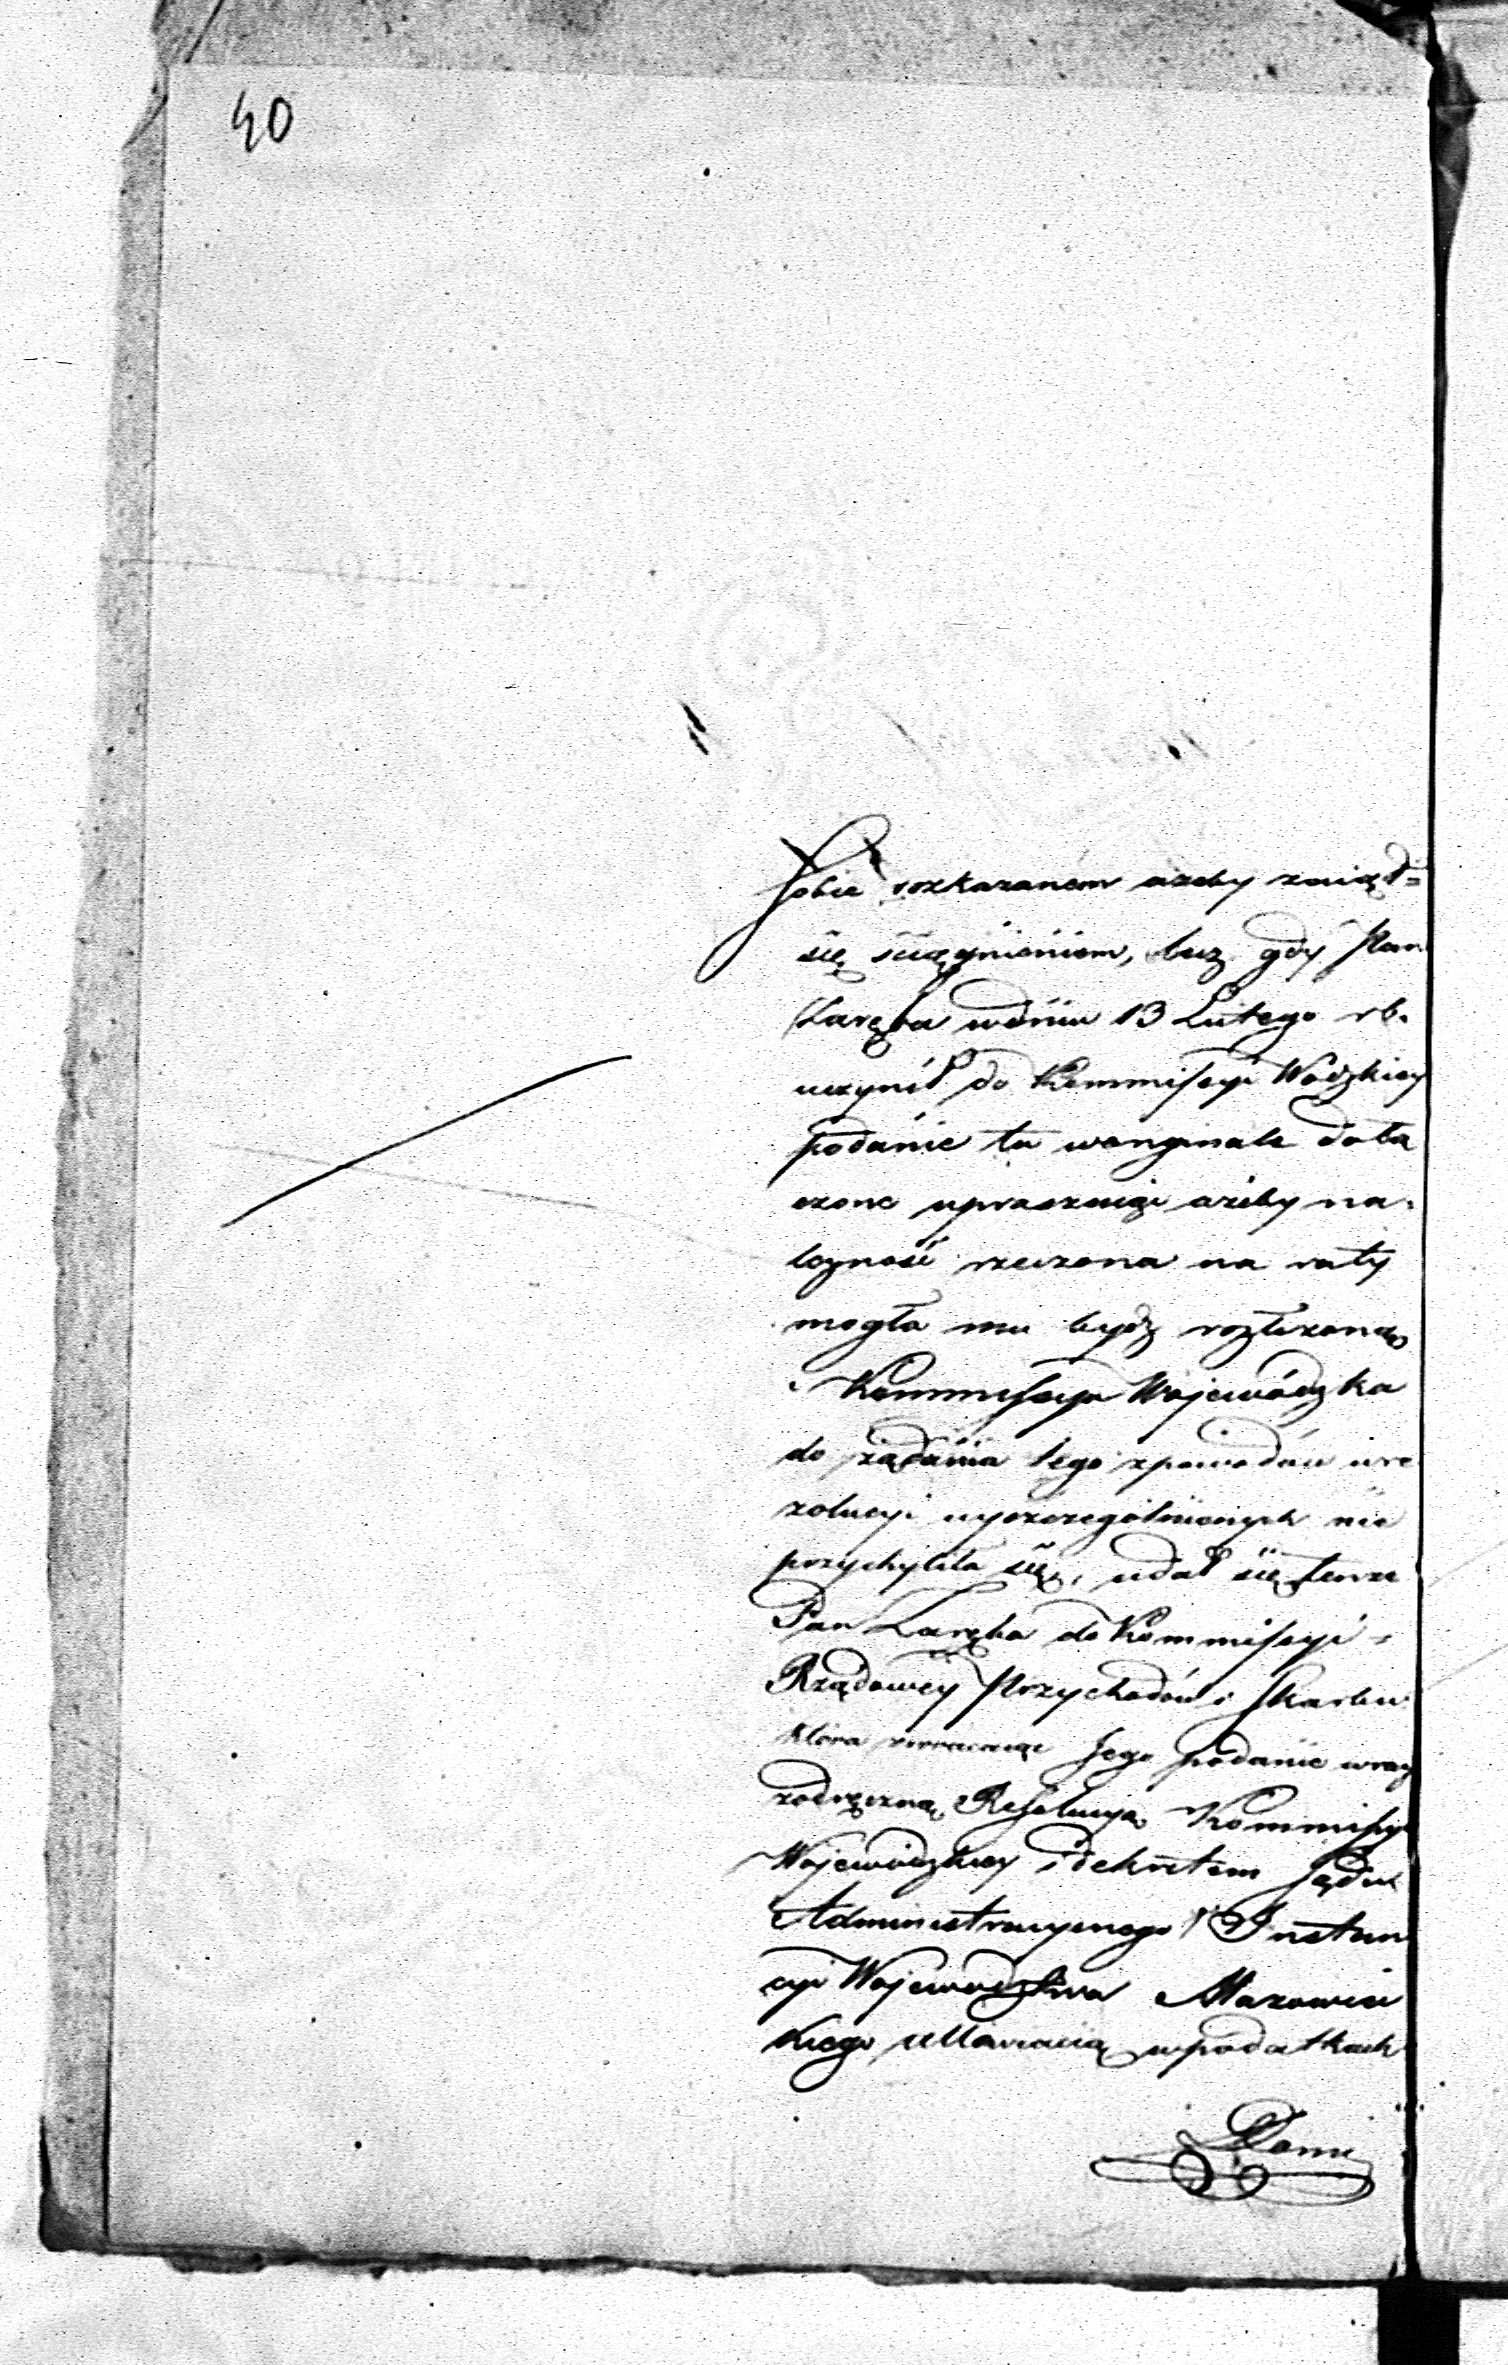 40
sobie rozkazanem azeby zaiął=
się sciągnieniem, lecz gdy Pan
Zaręba wdniu 13 Lutego rb.
uczynił do Kommissyi Wodzkiey
podanie tu worginale dołą
czone upraszaiąc ażeby na-
leżność rzeczona na raty
mogła mu bydz rozłożoną
Kommissyia Wojewódzka
do żądania tego zpowodów wre
zolucyi wyszczegolnionych nie
przychyliła się, udał się teraz
Pan Zaręba do Kommissyi =
Rządowey Przychodów i Skarbu
która zwracaiąc Jego podanie wraz
zodręczną Resolucyą Kommissyi
Wojewódzkiey i dekretem Sądu
Administracyinego I Instan
cyi Wojewodztwa Mazowiec
kiego wpodatkach